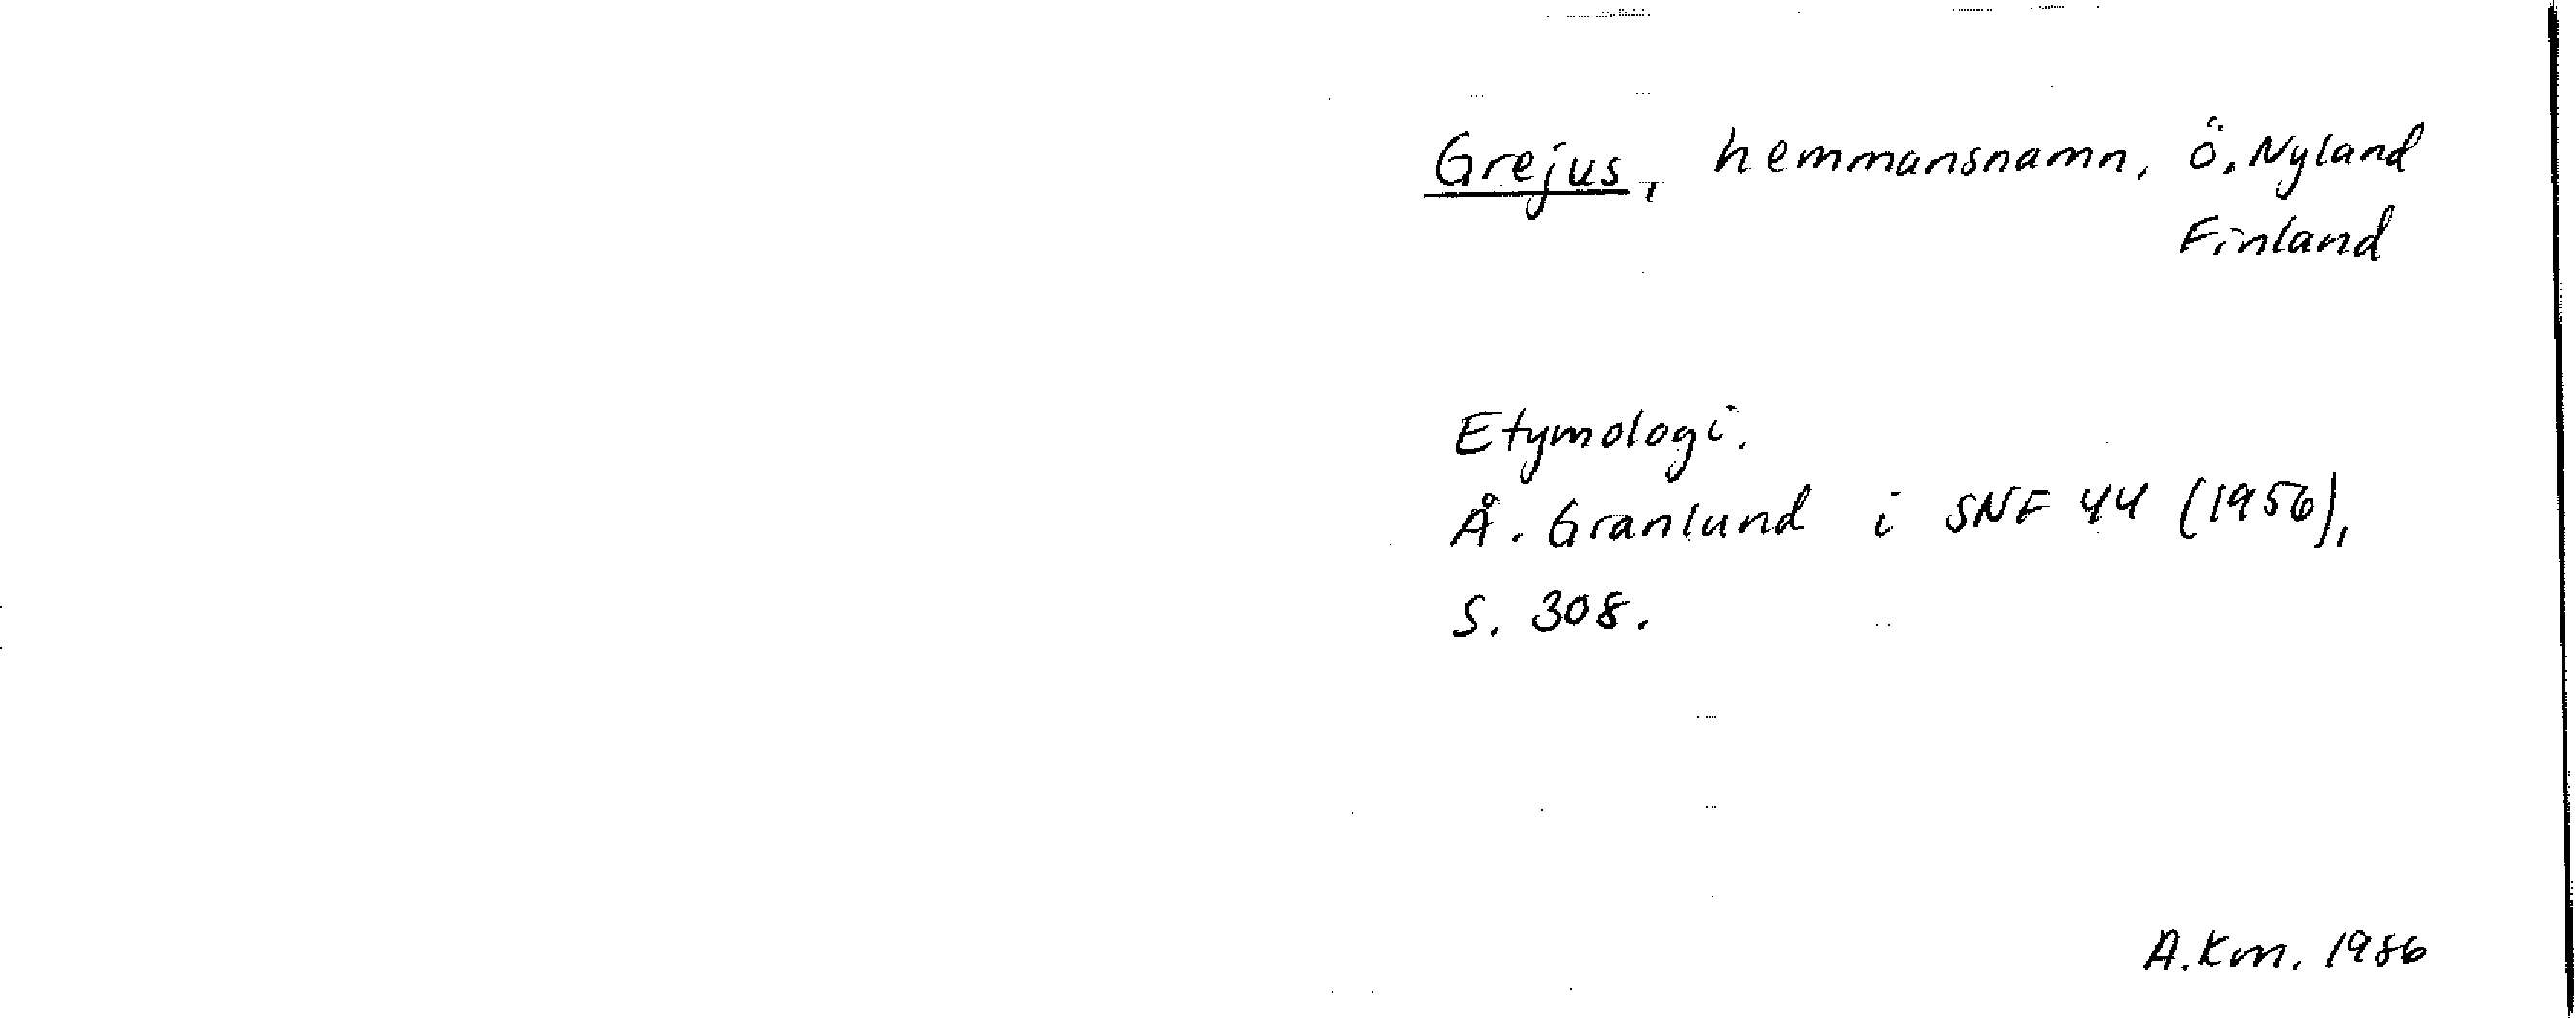 Grejus, hemmansnamn, Ö. Nyland
Finland
Etymologi.
Å. Granlund i SNF 44 (1956),
S. 308.
A.Km. 1986